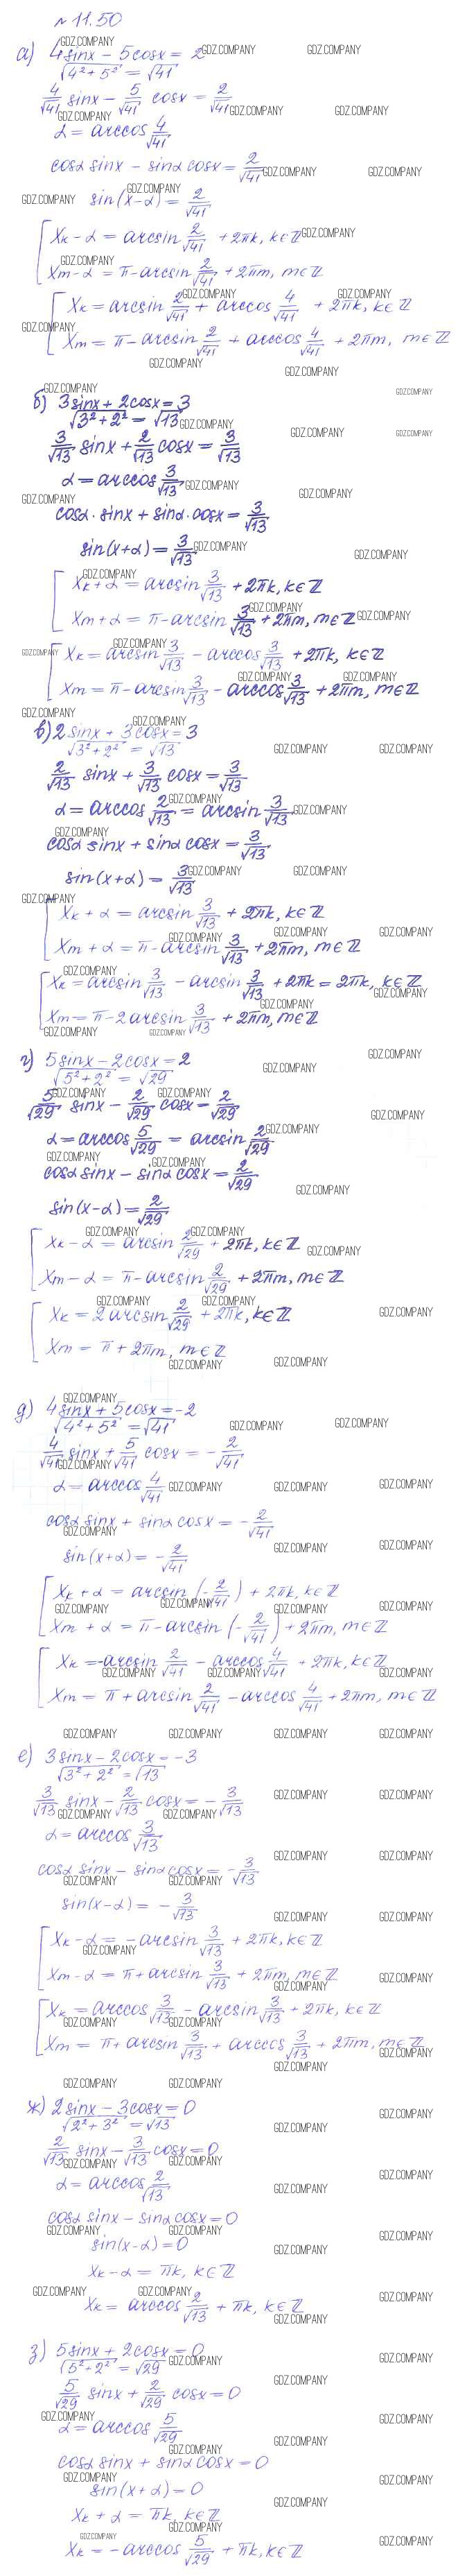 № 11.50
а) 4sinx - 5cosx = 2
√(4² + 5²) = √41
4/√41 sinx - 5/√41 cosx = 2/√41
α = arccos 4/√41
cosα sinx - sinα cosx = 2/√41
sin(x-α) = 2/√41
[ Xk - α = arcsin 2/√41 + 2πk, k∈Z
Xm - α = π - arcsin 2/√41 + 2πm, m∈Z
[ Xk = arcsin 2/√41 + arccos 4/√41 + 2πk, k∈Z
Xm = π - arcsin 2/√41 + arccos 4/√41 + 2πm, m∈Z
б) 3sinx + 2cosx = 3
√(3² + 2²) = √13
3/√13 sinx + 2/√13 cosx = 3/√13
α = arccos 3/√13
cosα·sinx + sinα·cosx = 3/√13
sin(x+α) = 3/√13
[ Xk + α = arcsin 3/√13 + 2πk, k∈Z
Xm + α = π - arcsin 3/√13 + 2πm, m∈Z
[ Xk = arcsin 3/√13 - arccos 3/√13 + 2πk, k∈Z
Xm = π - arcsin 3/√13 - arccos 3/√13 + 2πm, m∈Z
в) 2sinx + 3cosx = 3
√(3² + 2²) = √13
2/√13 sinx + 3/√13 cosx = 3/√13
α = arccos 2/√13 = arcsin 3/√13
cosα sinx + sinα cosx = 3/√13
sin(x+α) = 3/√13
[ Xk + α = arcsin 3/√13 + 2πk, k∈Z
Xm + α = π - arcsin 3/√13 + 2πm, m∈Z
[ Xk = arcsin 3/√13 - arcsin 3/√13 + 2πk = 2πk, k∈Z
Xm = π - 2arcsin 3/√13 + 2πm, m∈Z
г) 5sinx - 2cosx = 2
√(5² + 2²) = √29
5/√29 sinx - 2/√29 cosx = 2/√29
α = arccos 5/√29 = arcsin 2/√29
cosα sinx - sinα cosx = 2/√29
sin(x-α) = 2/√29
[ Xk - α = arcsin 2/√29 + 2πk, k∈Z
Xm - α = π - arcsin 2/√29 + 2πm, m∈Z
[ Xk = 2arcsin 2/√29 + 2πk, k∈Z
Xm = π + 2πm, m∈Z
д) 4sinx + 5cosx = -2
√(4² + 5²) = √41
4/√41 sinx + 5/√41 cosx = - 2/√41
α = arccos 4/√41
cosα sinx + sinα cosx = - 2/√41
sin(x+α) = - 2/√41
[ Xk + α = arcsin(- 2/√41) + 2πk, k∈Z
Xm + α = π - arcsin(- 2/√41) + 2πm, m∈Z
[ Xk = -arcsin 2/√41 - arccos 4/√41 + 2πk, k∈Z
Xm = π + arcsin 2/√41 - arccos 4/√41 + 2πm, m∈Z
е) 3sinx - 2cosx = -3
√(3² + 2²) = √13
3/√13 sinx - 2/√13 cosx = - 3/√13
α = arccos 3/√13
cosα sinx - sinα cosx = - 3/√13
sin(x-α) = - 3/√13
[ Xk - α = -arcsin 3/√13 + 2πk, k∈Z
Xm - α = π + arcsin 3/√13 + 2πm, m∈Z
[ Xk = arccos 3/√13 - arcsin 3/√13 + 2πk, k∈Z
Xm = π + arcsin 3/√13 + arccos 3/√13 + 2πm, m∈Z
ж) 2sinx - 3cosx = 0
√(2² + 3²) = √13
2/√13 sinx - 3/√13 cosx = 0
α = arccos 2/√13
cosα sinx - sinα cosx = 0
sin(x-α) = 0
Xk - α = πk, k∈Z
Xk = arccos 2/√13 + πk, k∈Z
з) 5sinx + 2cosx = 0
√(5² + 2²) = √29
5/√29 sinx + 2/√29 cosx = 0
α = arccos 5/√29
cosα sinx + sinα cosx = 0
sin(x+α) = 0
Xk + α = πk, k∈Z
Xk = -arccos 5/√29 + πk, k∈Z
GDZ.COMPANY